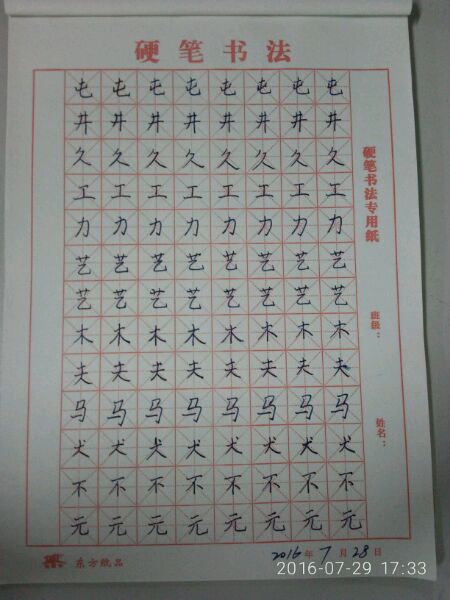 硬笔书法
屯屯屯屯屯屯屯屯
井井井井井井井井
久久久久久久久久
工工工工工工工工
力力力力力力力力
艺艺艺艺艺艺艺艺
艺艺艺艺艺艺艺艺
木木木木木木木木
夫夫夫夫夫夫夫夫
马马马马马马马马
犬犬犬犬犬犬犬犬
不不不不不不不不
元元元元元元元元
硬笔书法专用纸
班级：
姓名：
东方纸品
2016年7月28日
2016-07-29 17:33